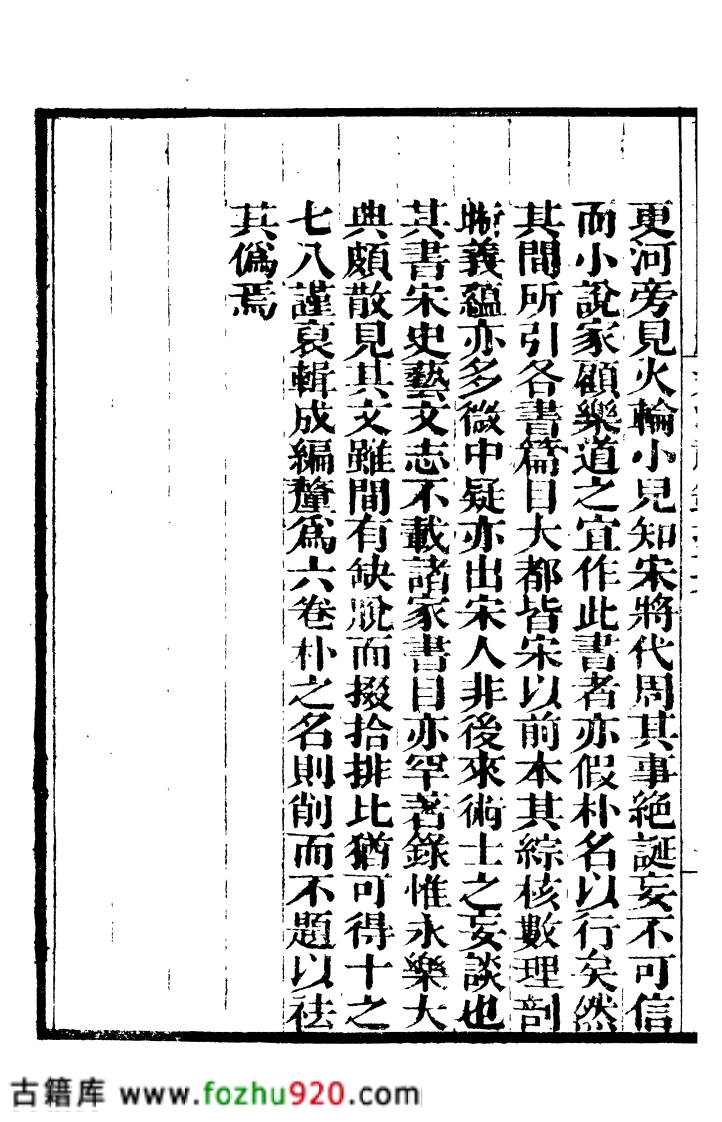 更河旁見火輪小見知宋將代周其事絶誕妄不可信
而小說家顧樂道之宜作此書者亦假朴名以行矣然
其間所引各書篇目大都皆宋以前本其綜核數理剖
晰義蘊亦多微中疑亦出宋人非後來術士之妄談也
其書宋史藝文志不載諸家書目亦罕著錄惟永樂大
典頗散見其文雖間有缺脫而掇拾排比猶可得十之
七八謹裒輯成編釐爲六卷朴之名則削而不題以祛
其僞焉
古籍库 www.fozhu920.com